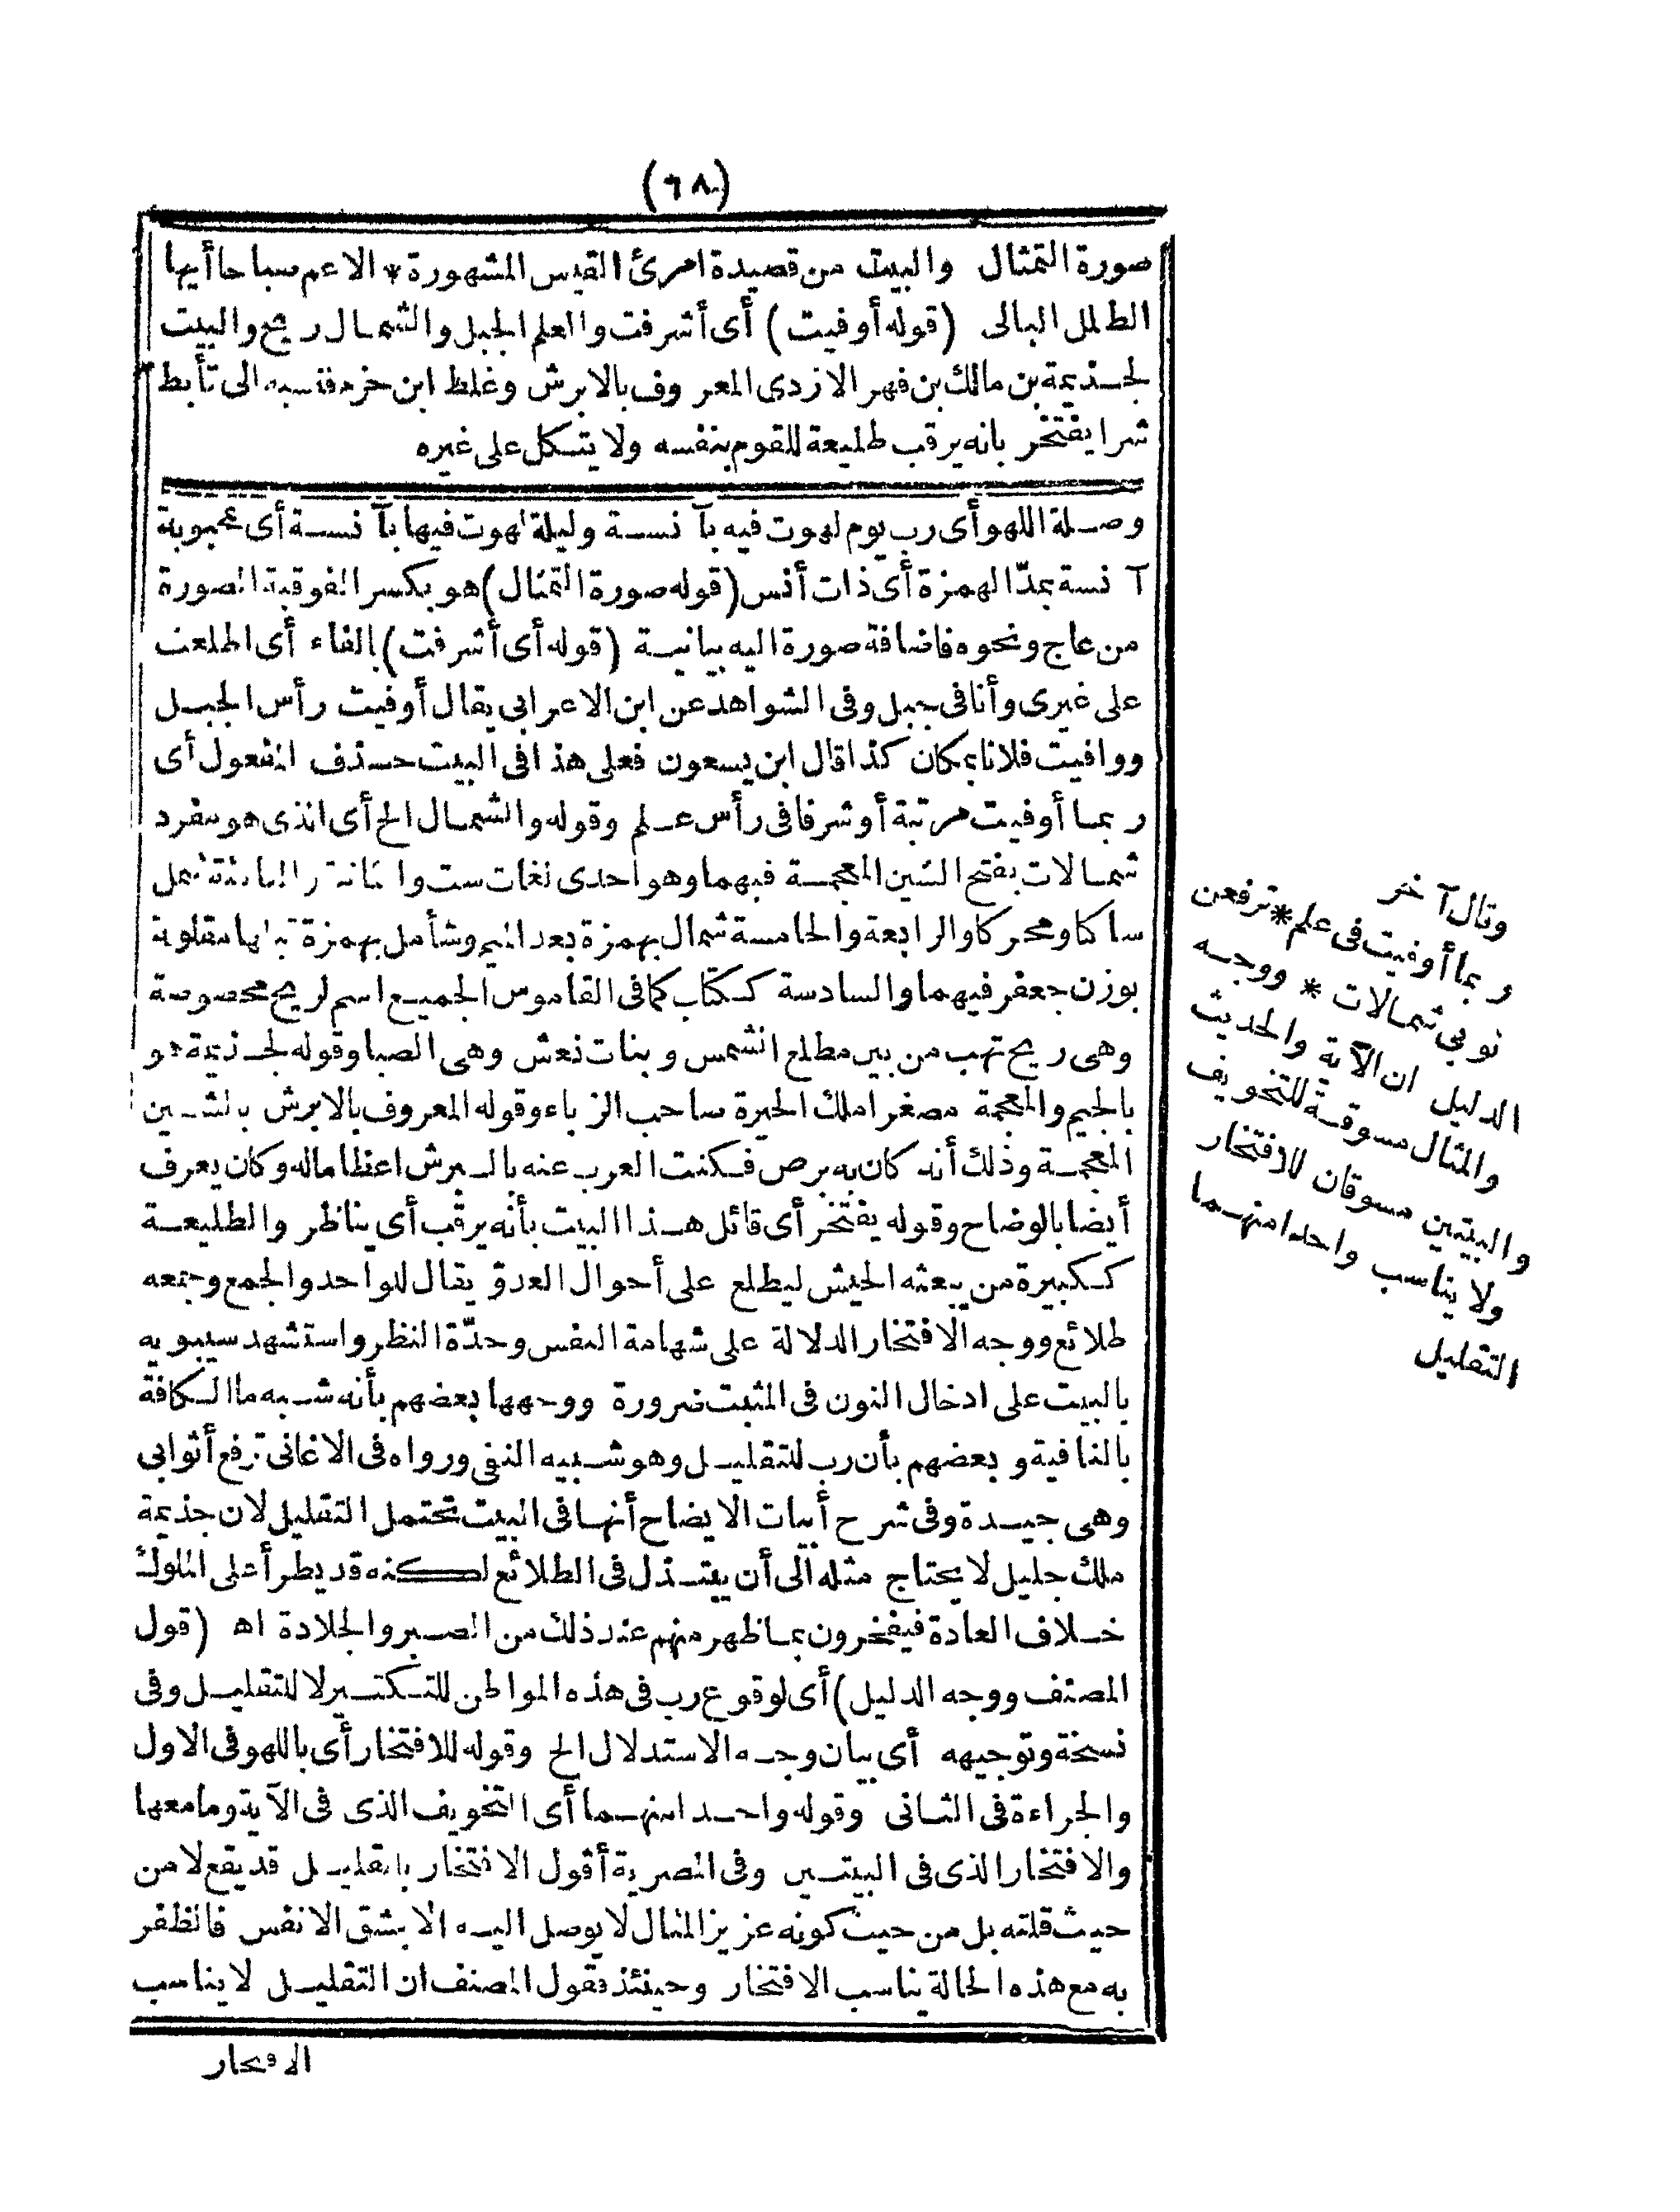 (٦٨)
صورة التمثال والبيت من قصيدة امرئ القيس المشهورة * الاعم صباحا أيها
الطلل البالى (قوله أوفيت) أى أشرفت والعلم الجبل والشمال ريح والبيت
لجذيمة بن مالك بن فهر الازدى المعروف بالابرش وغلط ابن حزم فنسبه الى تأبط
شرا يفتخر بانه يرقب طليعة للقوم بنفسه ولا يتكل على غيره
وصلة اللهو أى رب يوم لهوت فيه بآنسة وليلة لهوت فيها بآنسة أى محبوبة
آنسة بمدّ الهمزة أى ذات أنس (قوله صورة التمثال) هو بكسر الفوقية الصورة
من عاج ونحوه فاضافة صورة اليه بيانية (قوله أى أشرفت) بالفاء أى اطلعت
على غيرى وأنا فى جبل وفى الشواهد عن ابن الاعرابى يقال أوفيت رأس الجبل
ووافيت فلانا بمكان كذا قال ابن يسعون فعلى هذا فى البيت حذف المفعول أى
ربما أوفيت مرتبة أو شرفا فى رأس علم وقوله والشمال الخ أى الذى هو مفرد
شمالات بفتح الشين المعجمة فيهما وهو احدى لغات ست والثانية والثالثة شمل
ساكنا ومحركا والرابعة والخامسة شمال بهمزة بعد الميم وشأمل بهمزة قبلها مقلوبة
بوزن جعفر فيهما والسادسة ككتاب كما فى القاموس الجميع اسم لريح مخصوصة
وهى ريح تهب من بين مطلع الشمس وبنات نعش وهى الصبا وقوله لجذيمة هو
بالجيم والمعجمة مصغرا ملك الحيرة صاحب الزباء وقوله المعروف بالابرش بالشين
المعجمة وذلك أنه كان به برص فكنت العرب عنه بالبرش اعظاما له وكان يعرف
أيضا بالوضاح وقوله يفتخر أى قائل هذا البيت بأنه يرقب أى يناظر والطليعة
ككبيرة من يبعثه الجيش ليطلع على أحوال العدوّ يقال للواحد والجمع وجمعه
طلائع ووجه الافتخار الدلالة على شهامة النفس وحدّة النظر واستشهد سيبويه
بالبيت على ادخال النون فى المثبت ضرورة ووجهها بعضهم بأنه شبه ما الكافة
بالنافية وبعضهم بأن رب للتقليل وهو شبيه النفى ورواه فى الاغانى ترفع أثوابى
وهى جيدة وفى شرح أبيات الايضاح أنها فى البيت تحتمل التقليل لان جذيمة
ملك جليل لا يحتاج مثله الى أن يبتذل فى الطلائع لكنه قد يطرأ على الملوك
خلاف العادة فيفخرون بما ظهر منهم عند ذلك من الصبر والجلادة اه (قول
المصنف ووجه الدليل) أى لوقوع رب فى هذه المواطن للتكثير لا للتقليل وفى
نسخة وتوجيهه أى بيان وجه الاستدلال الخ وقوله للافتخار أى باللهو فى الاول
والجراءة فى الثانى وقوله واحد امنهما أى التخويف الذى فى الآية وما معها
والافتخار الذى فى البيتين وفى المصرية أقول الافتخار بالتقليل قد يقع لا من
حيث قلته بل من حيث كونه عزيز المنال لا يوصل اليه الا بشق الانفس فالظفر
به مع هذه الحالة يناسب الافتخار وحينئذ فقول المصنف ان التقليل لا يناسب
الافتخار
وقال آخر
ربما أوفيت فى علم * ترفعن
ثوبى شمالات * ووجه
الدليل ان الآية والحديث
والمثال مسوقة للتخويف
والبيتين مسوقان للافتخار
ولا يناسب واحدا منهما
التقليل